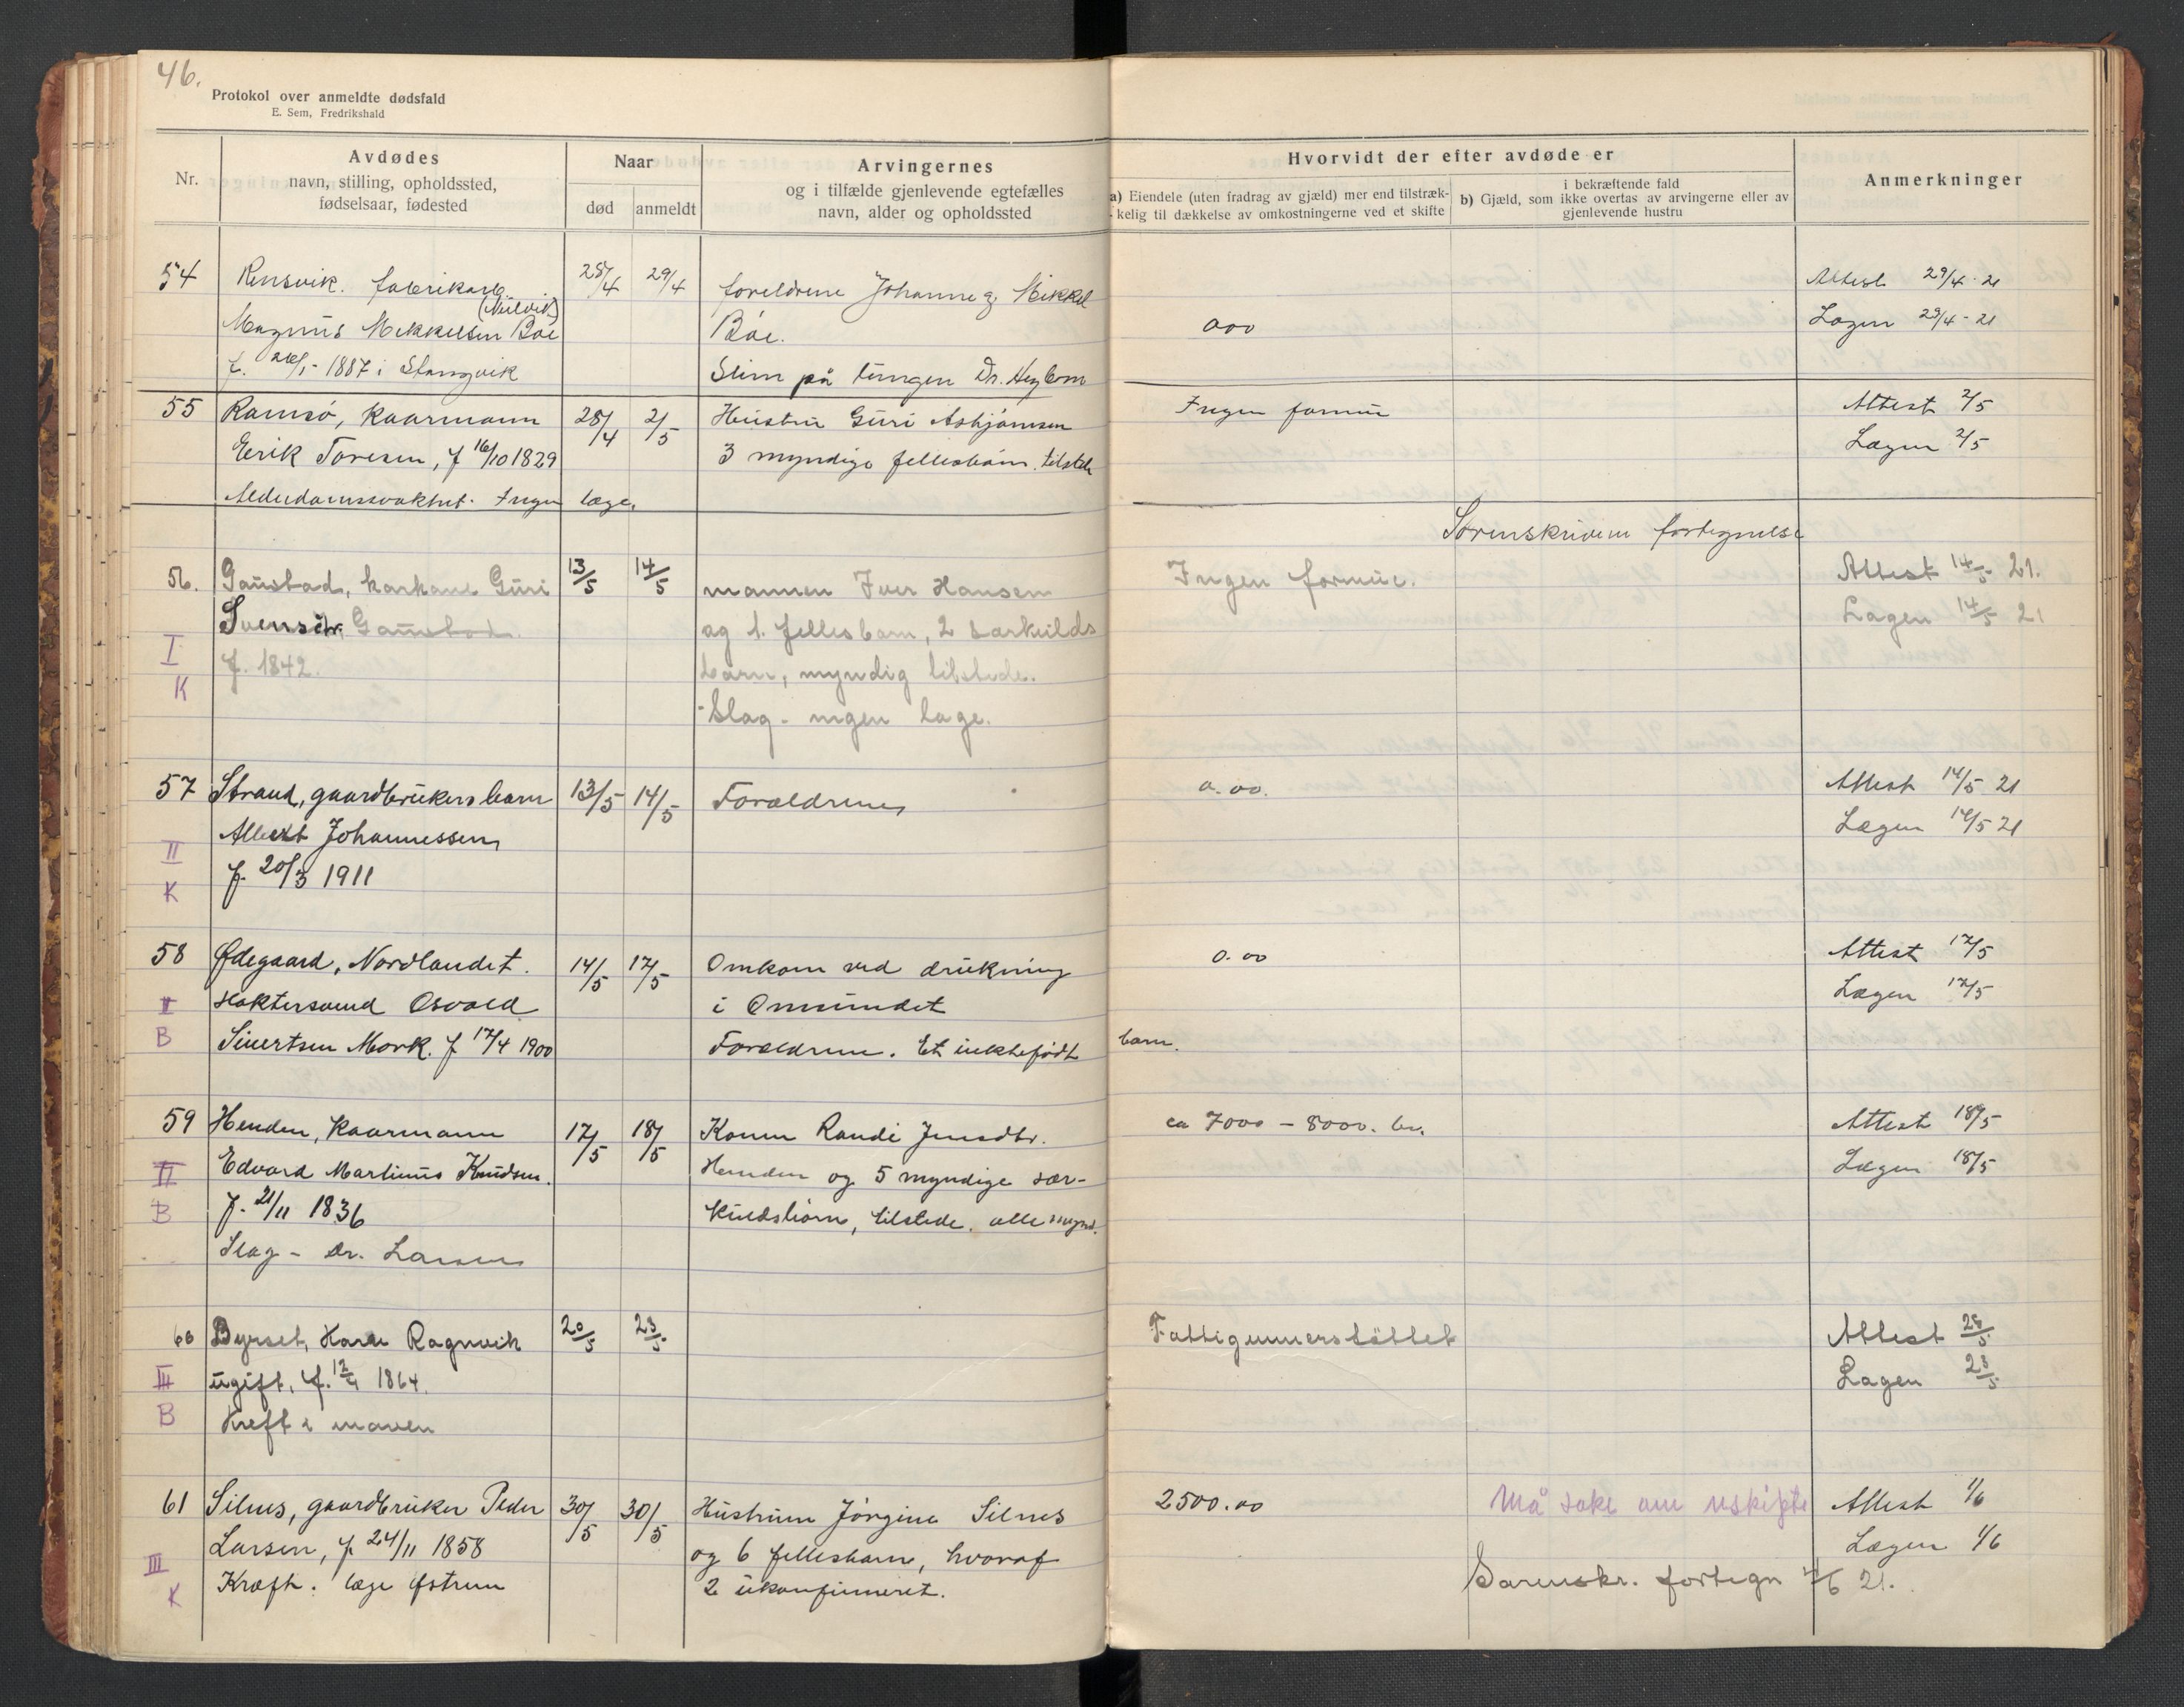 46.
Protokol over anmeldte dødsfald
E. Sem, Fredrikshald
Nr.
Avdødes
navn, stilling, opholdssted,
fødselsaar, fødested
Naar
død
anmeldt
Arvingernes
og i tilfælde gjenlevende egtefælles
navn, alder og opholdssted
Hvorvidt der efter avdøde er
a) Eiendele (uten fradrag av gjæld) mer end tilstræk-
kelig til dækkelse av omkostningerne ved et skifte
i bekræftende fald
b) Gjæld, som ikke overtas av arvingerne eller av
gjenlevende hustru
Anmerkninger
54 Rensvik. fabrikarb. 28/4 29/4 foreldrene Johanne og Mikkel Attest 29/4-21
Magnus Mikkelsen Bøe Bøe. 000 Lagen 29/4-21
f. 1887 i Stangvik på tungen Dr.
55 Ramsø, kaarmann 28/4 2/5 Hustru Guri Asbjørnsen Ingen formue Attest 2/5
Erik Toresen, f 16/10 1829 3 myndige fellesbarn. tilstede Lægen 2/5
Alderdomssvakhet. Ingen læge.
Sorenskriveren fortegnelse
56. Gaustad, karkone Guri 13/5 14/5 mannen Iver Hansen Ingen formue. Attest 14/5 21.
Svensdtr, Gaustad og 1. fellesbarn, 2 særkulds Lagen 14/5 21
I f. 1842. barn, myndig tilstede.
K Slag - ingen læge.
57 Strand, gaardbrukers barn 13/5 14/5 Forældrene 0.00. Attest 14/5 21
Albert Johannessen Lægen 14/5 21
II f. 20/3 1911
K
58 Ødegaard, Nordlandet. 14/5 17/5 Omkom ved drukning 0.00 Attest 17/5
II Slaktersvend Osvald i Omsundet Lægen 17/5
B Sivertsen Mork. f 17/4 1900 Forældrene. Et uektefødt barn.
59 Henden, Kaarmann 17/5 18/5 Konen Randi Jensdtr. ca 7000 - 8000. kr. Attest 18/5
II Edvard Martinus Knudsen. Henden og 5 myndige sær- Lægen 18/5
B f. 21/11 1836 kuldsbarn, tilstede. alle mynd.
Slag - Dr. Larsen
60 Byrset, Karen Ragnvik 20/5 23/5 Fattigunnerstöttet Attest
III ugift, f. 1864. Lagen
B Kreft i maven
61 Silnes, gaardbruker Peder 30/5 30/5 Hustruen Jørgine Silnes 2500.00 Må søke om uskifte Attest 1/6
Larsen, f 24/11 1858 og 6 fellesbarn, hvoraf Lægen 1/6
III Kræft. læge Østrem 2 ukonfirmeret. Sorenskr. fortegn 21.
K